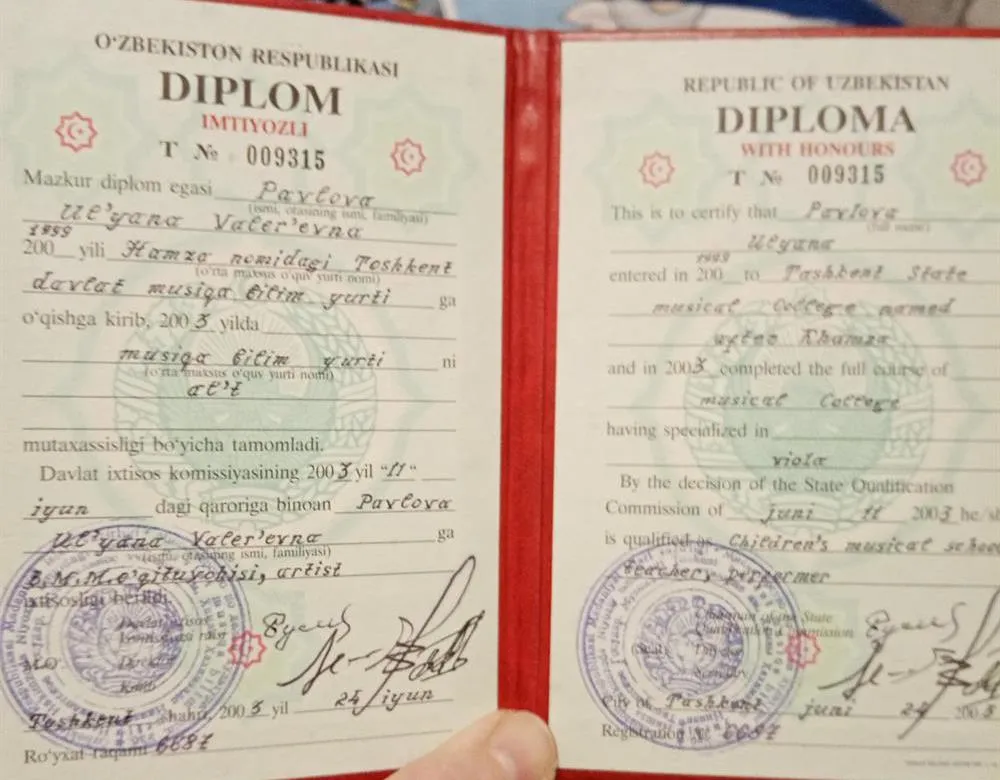 O‘ZBEKISTON RESPUBLIKASI
DIPLOM
IMTIYOZLI
T № 009315
Mazkur diplom egasi Pavlova
(ismi, otasining ismi, familiyasi)
Ul'yana Valer'evna
1999
200 yili Hamza nomidagi Toshkent
(o‘rta maxsus o‘quv yurti nomi)
davlat musiqa bilim yurti ga
o‘qishga kirib, 2003 yilda
musiqa bilim yurti ni
(o‘rta maxsus o‘quv yurti nomi)
al't
mutaxassisligi bo‘yicha tamomladi.
Davlat ixtisos komissiyasining 2003 yil "11"
iyun dagi qaroriga binoan Pavlova
Ul'yana Valer'evna ga
(ismi, otasining ismi, familiyasi)
B.M.M. o'qituvchisi, artist
ixtisosligi berildi.
Davlat ixtisos
komissiyasi raisi
M.O. Direktor
Kotib
24 iyun
Toshkent shahri, 2003 yil
Ro‘yxat raqami 6687
REPUBLIC OF UZBEKISTAN
DIPLOMA
WITH HONOURS
T № 009315
This is to certify that Pavlova
(full name)
Ulyana
1999
entered in 200 to Tashkent State
musical College named
aytee Khamza
and in 2003 completed the full course of
musical College
having specialized in
viola
By the decision of the State Qualification
Commission of juni 11 2003 he/sh
is qualified as Children's musical school
teachery performer
Chairman of the State
Qualification Commission
(Seal) Director
Secretary
City of Tashkent juni 24 2003
Registration № 6687